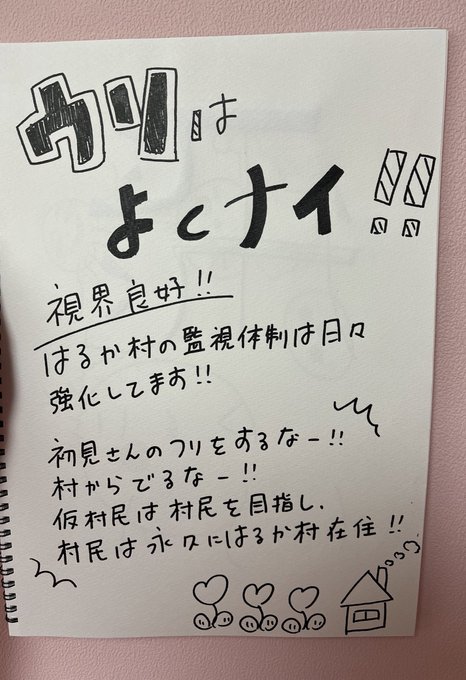 ウリは
よくナイ!!
視界良好!!
はるか村の監視体制は日々
強化してます!!
初見さんのフリをするなー!!
村からでるなー!!
仮村民は村民を目指し、
村民は永久にはるか村在住!!